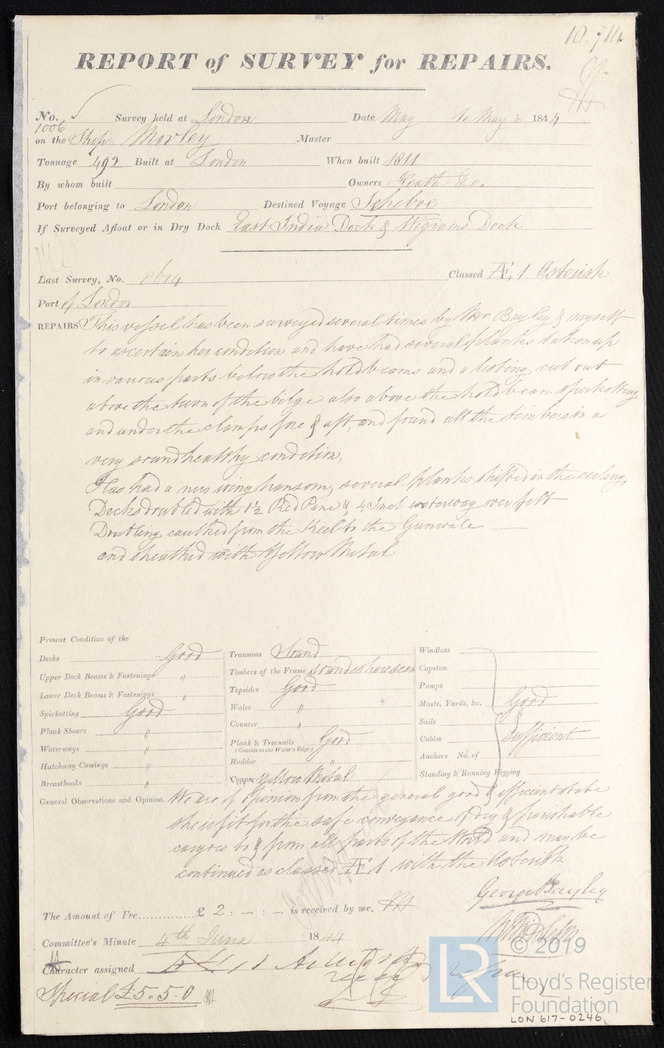 10714
REPORT of SURVEY for REPAIRS.
No. 1006 Survey held at London Date May to May 1844
on the Ship Morley Master
Tonnage 492 Built at London When built 1811
By whom built Owners Heath &c.
Port belonging to London Destined Voyage Ichaboe
If Surveyed Afloat or in Dry Dock East India Dock & Wigrams Dock
Last Survey, No. 8614 Classed Æ. 1 Asterisk
Port of London
REPAIRS This vessel has been surveyed several times by Mr Bayley & myself
to ascertain her condition and have had several planks taken up
in various parts below the hold beams and a listing cut out
above the turn of the bilge also above the hold beam spirketting
and under the clamps fore & aft, and found all the timbers in a
very sound healthy condition,
Has had a new wing transom, several planks shifted in the ceiling,
Decks doubled with 1½ Red Pine & 4 Inch waterway over felt
Doubling caulked from the Keel to the Gunwale
and sheathed with Yellow Metal
Present Condition of the
Decks Good
Upper Deck Beams & Fastenings "
Lower Deck Beams & Fastenings "
Spirketting Good
Plank Shears "
Waterways "
Hatchway Comings "
Breasthooks "
Transoms Sound
Timbers of the Frame sound where seen
Topsides Good
Wales "
Counter "
Plank & Treenails Good
(Outside to the Water's Edge)
Rudder "
Copper Yellow Metal
Windlass
Capstan
Pumps
Masts, Yards, &c. Good
Sails
Cables Sufficient
Anchors No. of
Standing & Running Rigging
General Observations and Opinion, We are of Opinion from the general good & efficient state
she is fit for the safe conveyance of dry & perishable
cargoes to & from all parts of the World and may be
continued as classed Æ 1 with the Asterisk
George Bayley
The Amount of Fee £ 2 : - : - is received by me,
Committee's Minute 4th June 1844
Character assigned
Special £5.5.0
LR © 2019
Lloyd's Register
Foundation
LON 617-0246